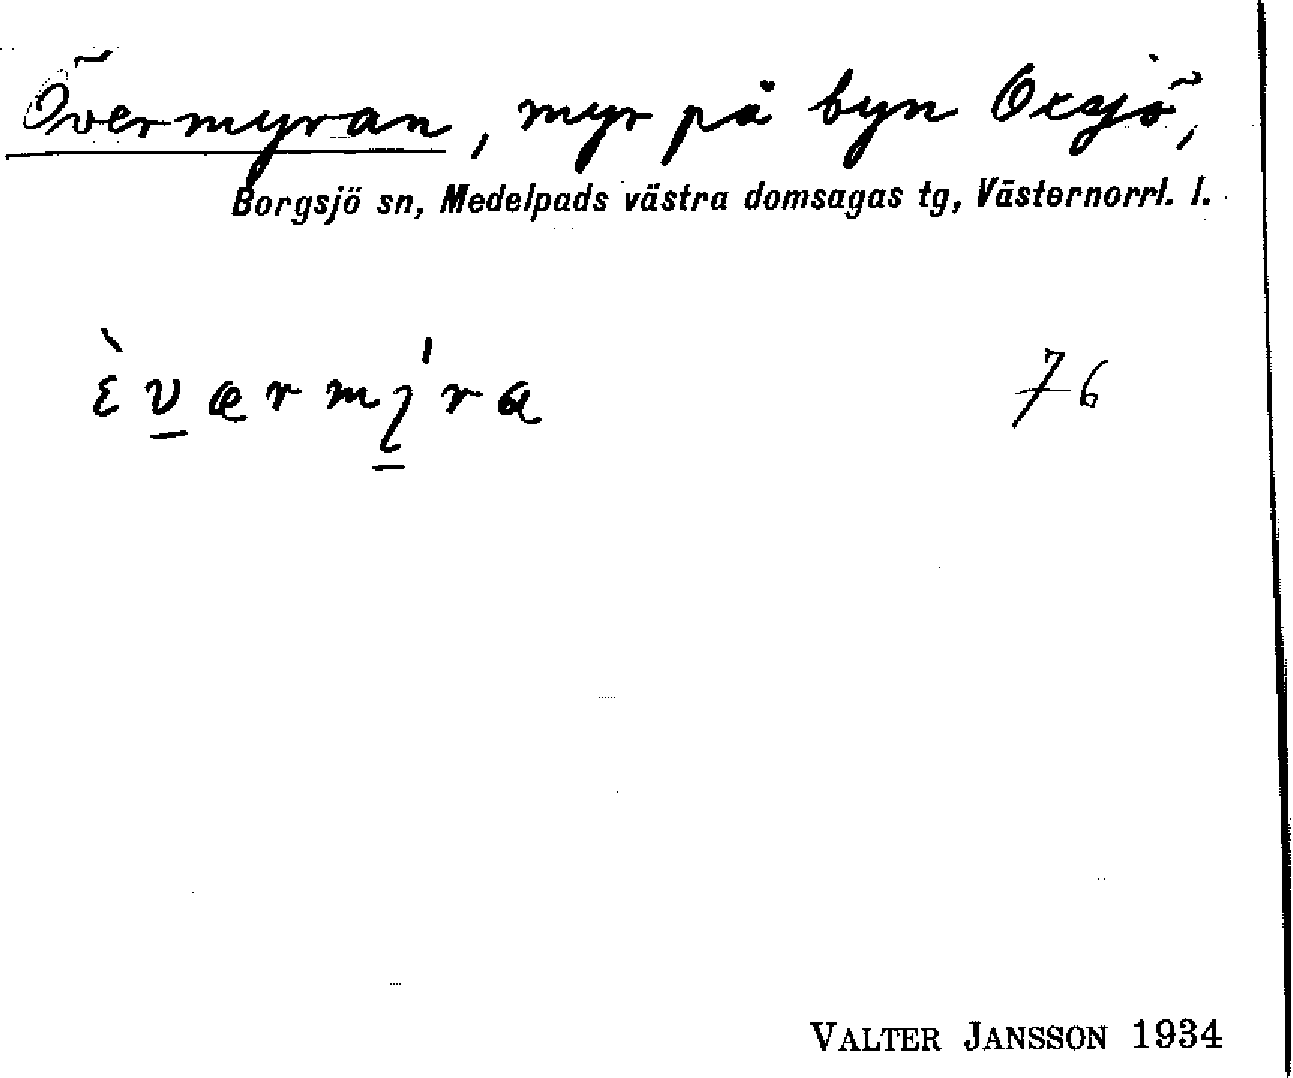 Övermyran, myr på byn Oxsjö,
Borgsjö sn, Medelpads västra domsagas tg, Västernorrl. l.
76
VALTER JANSSON 1934